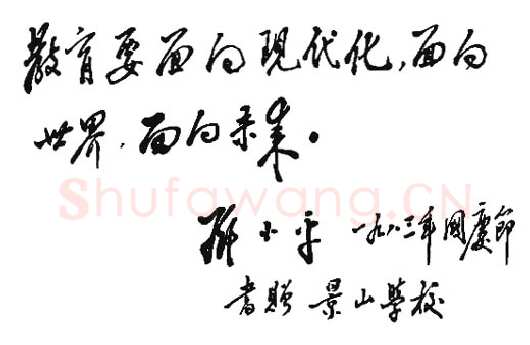 教育要面向现代化,面向
世界,面向未来。
Shufawang.CN
邓小平 一九八三年國慶節
書贈 景山學校